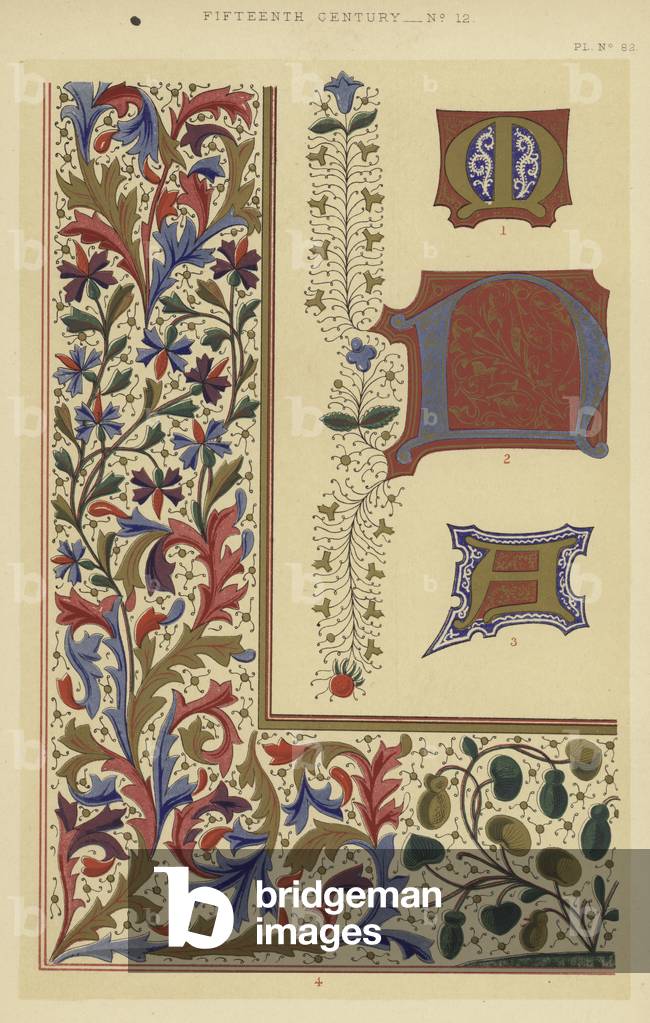 FIFTEENTH CENTURY__Nº 12.
PL. Nº 82.
M
1
N
2
A
3
b bridgeman images
4